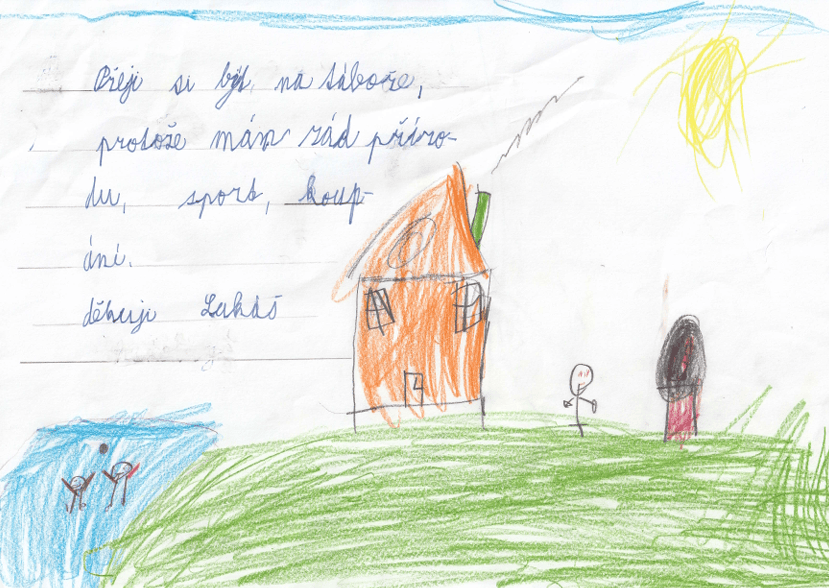 Přeji si být na táboře,
protože mám rád příro-
du, sport, koup-
ání.
děkuji Lukáš